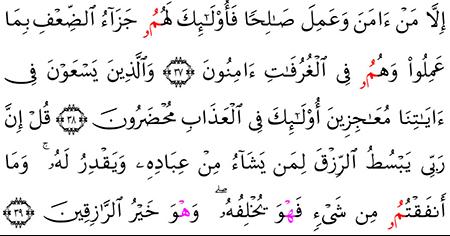 إِلَّا مَنْ ءَامَنَ وَعَمِلَ صَٰلِحًا فَأُوْلَٰٓئِكَ لَهُمُۥ جَزَآءُ اُ۬لضِّعْفِ بِمَا
عَمِلُواْ وَهُمُۥ فِے اِ۬لْغُرُفَٰتِ ءَامِنُونَ ٣٧ وَالذِينَ يَسْعَوْنَ فِے
ءَايَٰتِنَا مُعَٰجِزِينَ أُوْلَٰٓئِكَ فِے اِ۬لْعَذَابِ مُحْضَرُونَ ٣٨ قُلْ إِنَّ
رَبِّے يَبْسُطُ اُ۬لرِّزْقَ لِمَنْ يَّشَآءُ مِنْ عِبَادِهِۦ وَيَقْدِرُ لَهُۥ ۚ وَمَا
أَنفَقْتُمُۥ مِن شَےْءٖ فَهْوَ يُخْلِفُهُۥ ۖ وَهْوَ خَيْرُ اُ۬لرَّٰزِقِينَ ٣٩